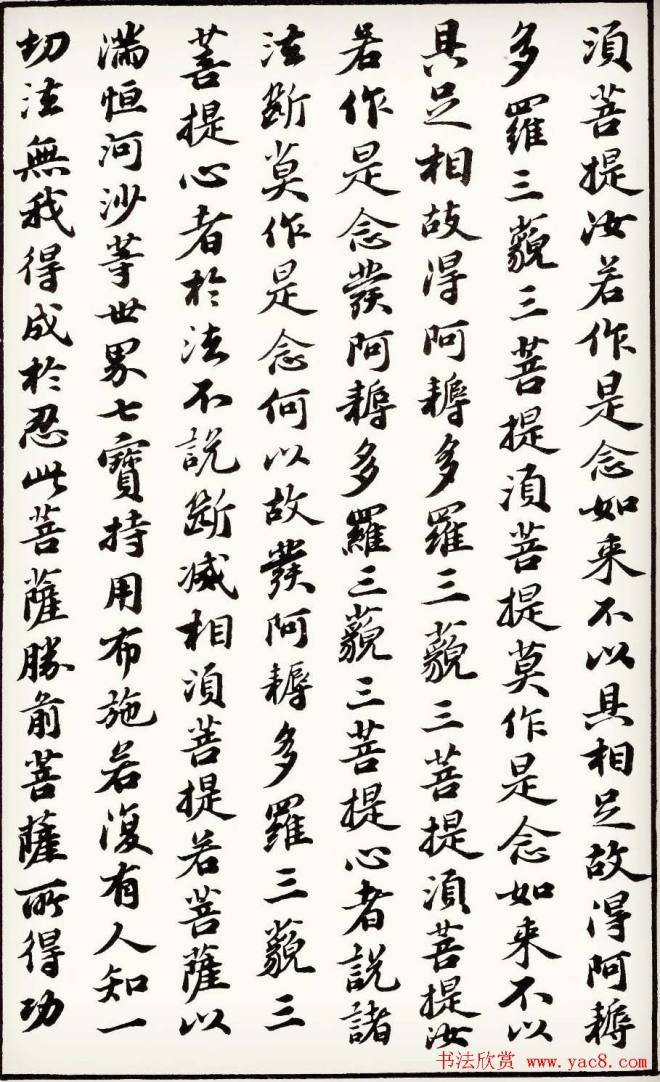 須菩提汝若作是念如来不以具相足故得阿耨
多羅三藐三菩提須菩提莫作是念如来不以
具足相故得阿耨多羅三藐三菩提須菩提汝
若作是念發阿耨多羅三藐三菩提心者説諸
法斷莫作是念何以故發阿耨多羅三藐三
菩提心者於法不説斷滅相須菩提若菩薩以
滿恒河沙等世界七寶持用布施若復有人知一
切法無我得成於忍此菩薩勝前菩薩所得功
书法欣赏 www.yac8.com